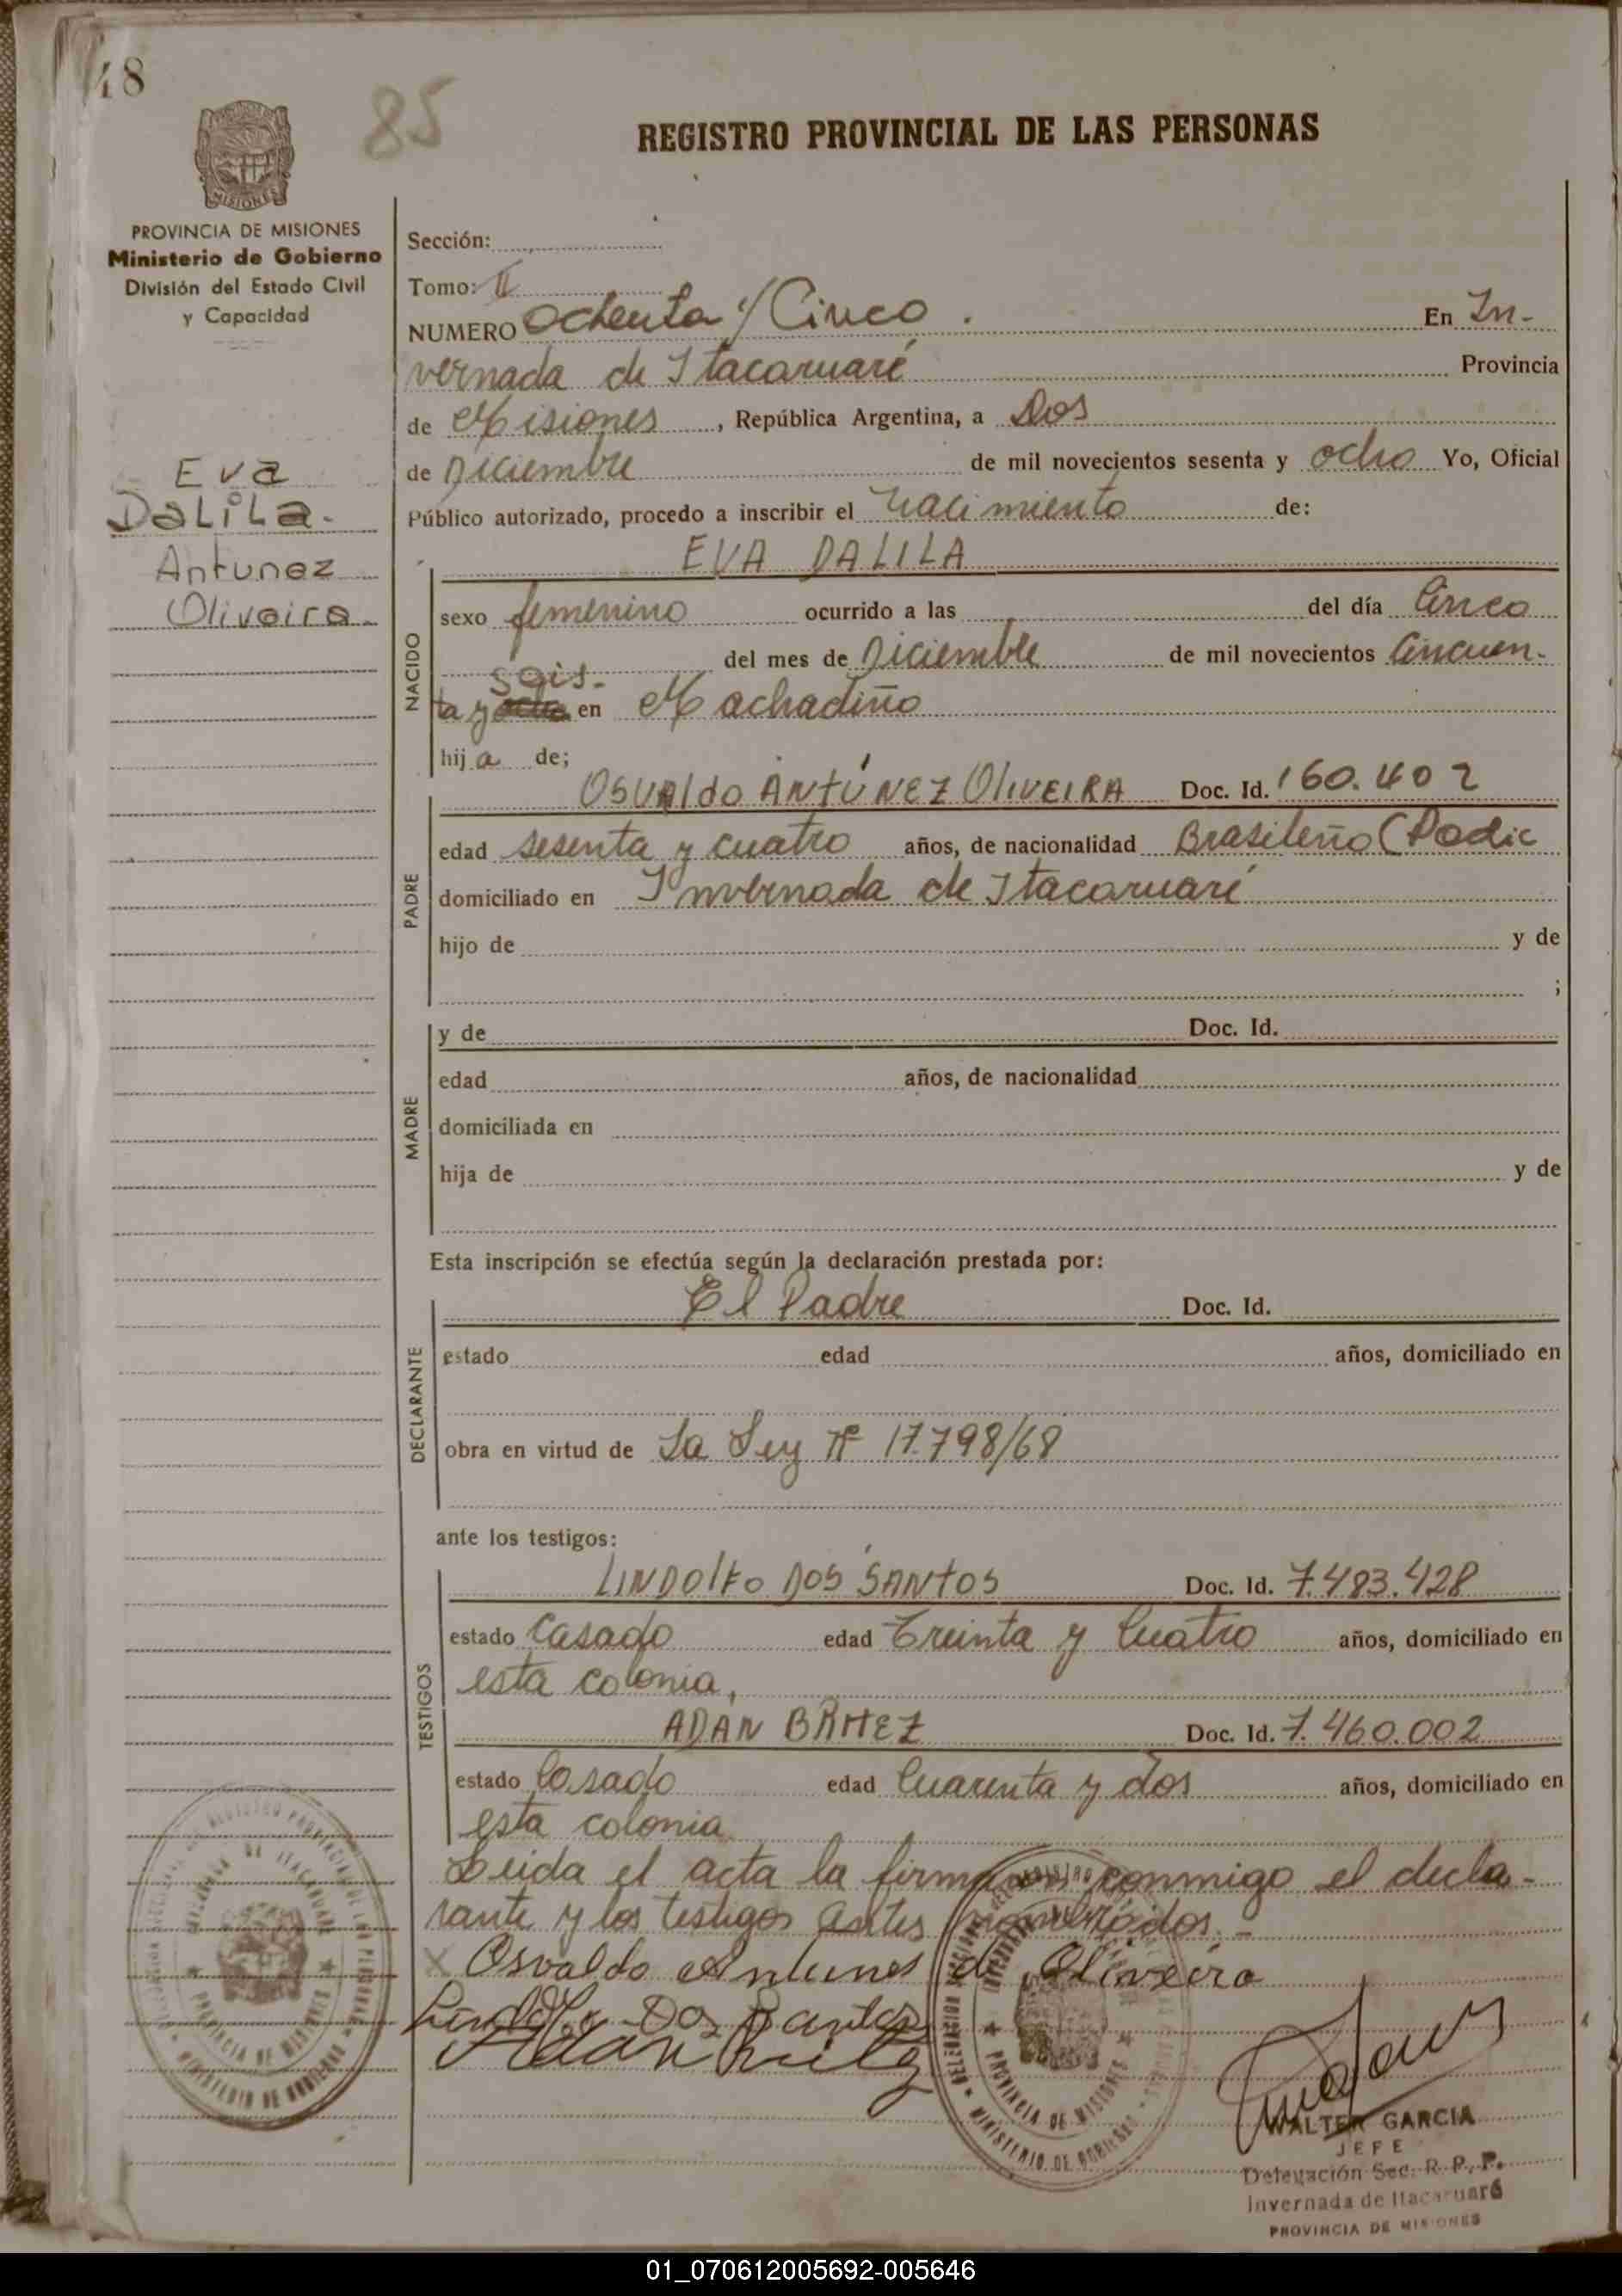 48
85
REGISTRO PROVINCIAL DE LAS PERSONAS
MISIONES
PROVINCIA DE MISIONES
Ministerio de Gobierno
División del Estado Civil
y Capacidad
Eva
DaLiLa.
Antunez
Oliveira
Sección:
Tomo: II
NUMERO Ochenta y Cinco. En In-
vernada de Itacaruaré Provincia
de Misiones, República Argentina, a Dos
de Diciembre de mil novecientos sesenta y ocho Yo, Oficial
Público autorizado, procedo a inscribir el nacimiento de:
NACIDO
EVA DALILA
sexo femenino ocurrido a las del día Cinco
del mes de Diciembre de mil novecientos Cincuen-
seis-
ta y ocho en Machadiño
hija de;
PADRE
OSVAldo ANTÚNEZ OlIVEIRA Doc. Id. 160.402
edad sesenta y cuatro años, de nacionalidad Brasileño (Padic
domiciliado en Invernada de Itacaruaré
hijo de y de
;
MADRE
y de Doc. Id.
edad años, de nacionalidad
domiciliada en
hija de y de
Esta inscripción se efectúa según la declaración prestada por:
DECLARANTE
El Padre Doc. Id.
estado edad años, domiciliado en
obra en virtud de La Ley Nº 17.798/68
ante los testigos:
TESTIGOS
LINDOlFO DOS SANTOS Doc. Id. 7.483.428
estado Casado edad Treinta y Cuatro años, domiciliado en
esta colonia,
ADAN Doc. Id. 7.460.002
estado Casado edad Cuarenta y dos años, domiciliado en
esta colonia
Leida el acta la firman conmigo el decla-
rante y los testigos antes nombrados.-
x Osvaldo Antunes de Oliveira
Lindolfo Dos Santos
Adan
WALTER GARCIA
JEFE
Delegación Sec. R. P. P.
Invernada de Itacaruaré
PROVINCIA DE MISIONES
PROVINCIA DE MISIONES
MINISTERIO DE GOBIERNO
PROVINCIA DE MISIONES
MINISTERIO DE GOBIERNO
01_070612005692-005646